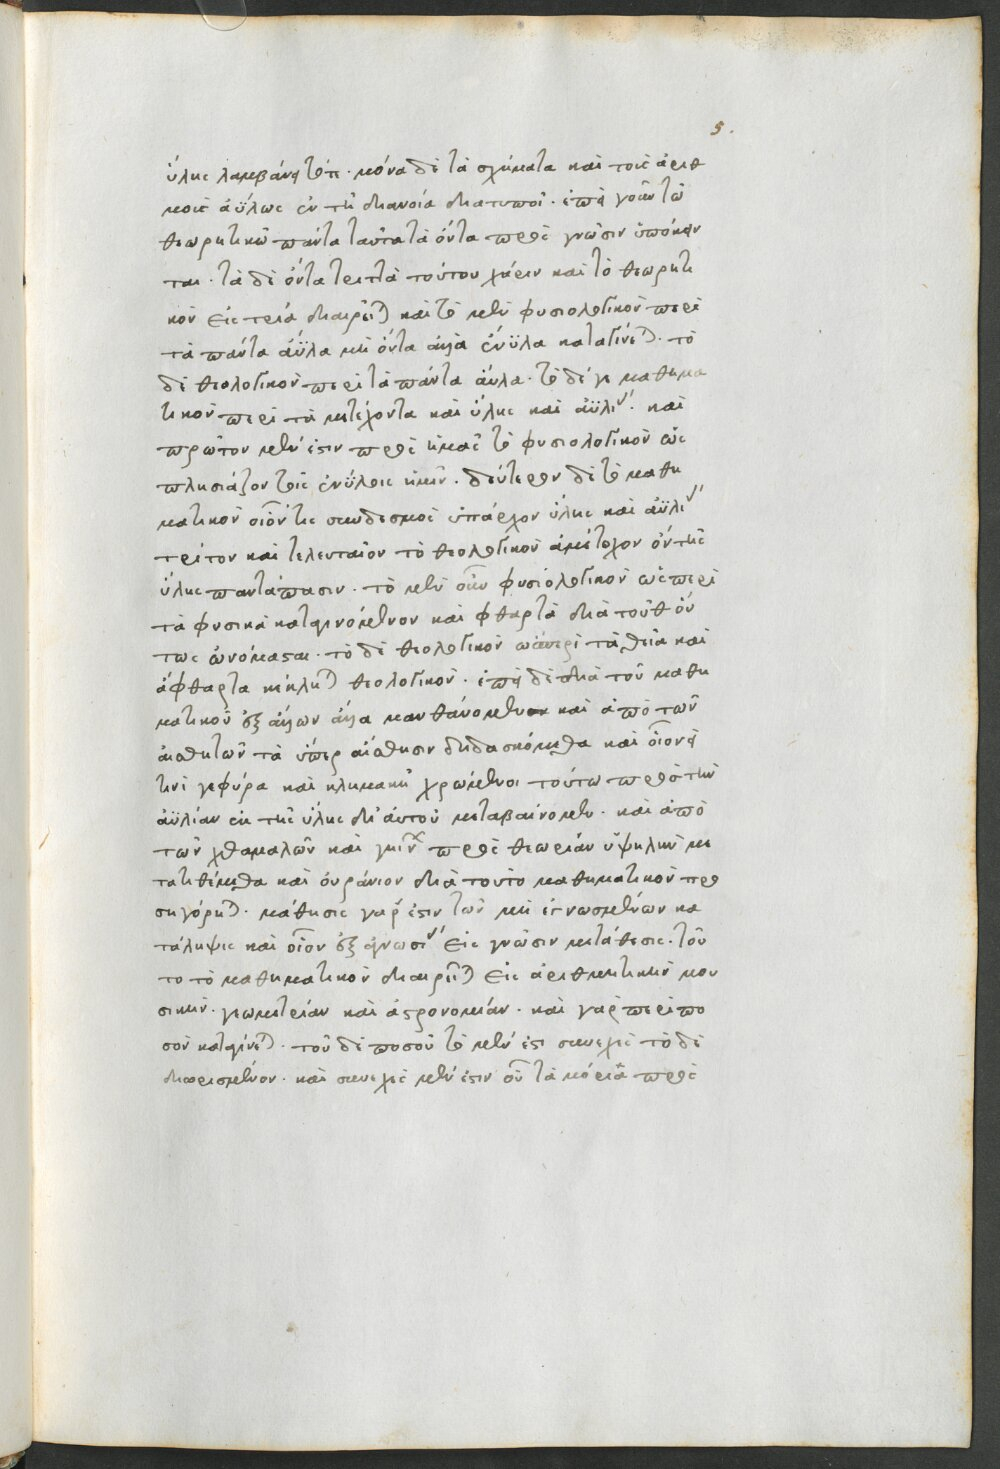 5.
ὕλης λαμβάνει τότε. μόνα δὲ τὰ σχήματα καὶ τοὺς ἀριθ
μοὺς ἀΰλως ἐν τῇ διανοίᾳ διατυποῖ. ἐπεὶ γοῦν τῶ
θεωρητικῶ πάντα ταῦτα τὰ ὄντα πρὸς γνῶσιν ὑπόκειν
ται. τὰ δὲ ὄντα τριττὰ τούτου χάριν καὶ τὸ θεωρητι
κὸν εἰς τρία διαιρεῖται καὶ τὸ μὲν φυσιολογικὸν περὶ
τὰ πάντα ἄϋλα μὴ ὄντα ἀλλὰ ἔνϋλα καταγίνεται. τὸ
δὲ θεολογικὸν περὶ τὰ πάντα ἄυλα. τὸ δέ γε μαθημα
τικὸν περὶ τὰ μετέχοντα καὶ ὕλης καὶ ἀϋλίας. καὶ
πρῶτον μέν ἐστιν πρὸς ἡμᾶς τὸ φυσιολογικὸν ὡς
πλησιάζον τοῖς ἐνΰλοις ἡμῖν. δεύτερον δὲ τὸ μαθη
ματικὸν οἷόν τις σύνδεσμος ὑπάρχον ὕλης καὶ ἀϋλίας
τρίτον καὶ τελευταῖον τὸ θεολογικὸν ἀμέτοχον ὂν τῆς
ὕλης παντάπασιν. τὸ μὲν οὖν φυσιολογικὸν ὡς περὶ
τὰ φυσικὰ καταγινόμενον καὶ φθαρτὰ διὰ τοῦθ' οὕ
τως ὠνόμασται. τὸ δὲ θεολογικὸν ὡς περὶ τὰ θεῖα καὶ
ἄφθαρτα κέκληται θεολογικόν. ἐπεὶ δὲ διὰ τοῦ μαθη
ματικοῦ ἐξ ἄλλων ἄλλα μανθάνομεν καὶ ἀπὸ τῶν
αἰσθητῶν τὰ ὑπὲρ αἴσθησιν διδασκόμεθα καὶ οἱονεί
τινι γεφύρα καὶ κλίμακι χρώμενοι τούτω πρὸς τὴν
ἀϋλίαν ἐκ τῆς ὕλης δι' αὐτοῦ μεταβαίνομεν. καὶ ἀπὸ
τῶν χθαμαλῶν καὶ γηΐνων πρὸς θεωρίαν ὑψηλὴν με
τατιθέμεθα καὶ οὐράνιον διὰ τοῦτο μαθηματικὸν προ
σηγόρηται. μάθησις γάρ ἐστιν τῶν μὴ ἐγνωσμένων κα
τάληψις καὶ οἷον ἐξ ἀγνωσίας εἰς γνῶσιν μετάθεσις. τοῦ
το τὸ μαθηματικὸν διαιρεῖται εἰς ἀριθμητικὴν μου
σικὴν. γεωμετρίαν καὶ ἀστρονομίαν. καὶ γὰρ περὶ πο
σὸν καταγίνεται. τοῦ δὲ ποσοῦ τὸ μέν ἐστι συνεχὲς τὸ δὲ
διωρισμένον. καὶ συνεχὲς μέν ἐστιν οὗ τὰ μόρια πρὸς